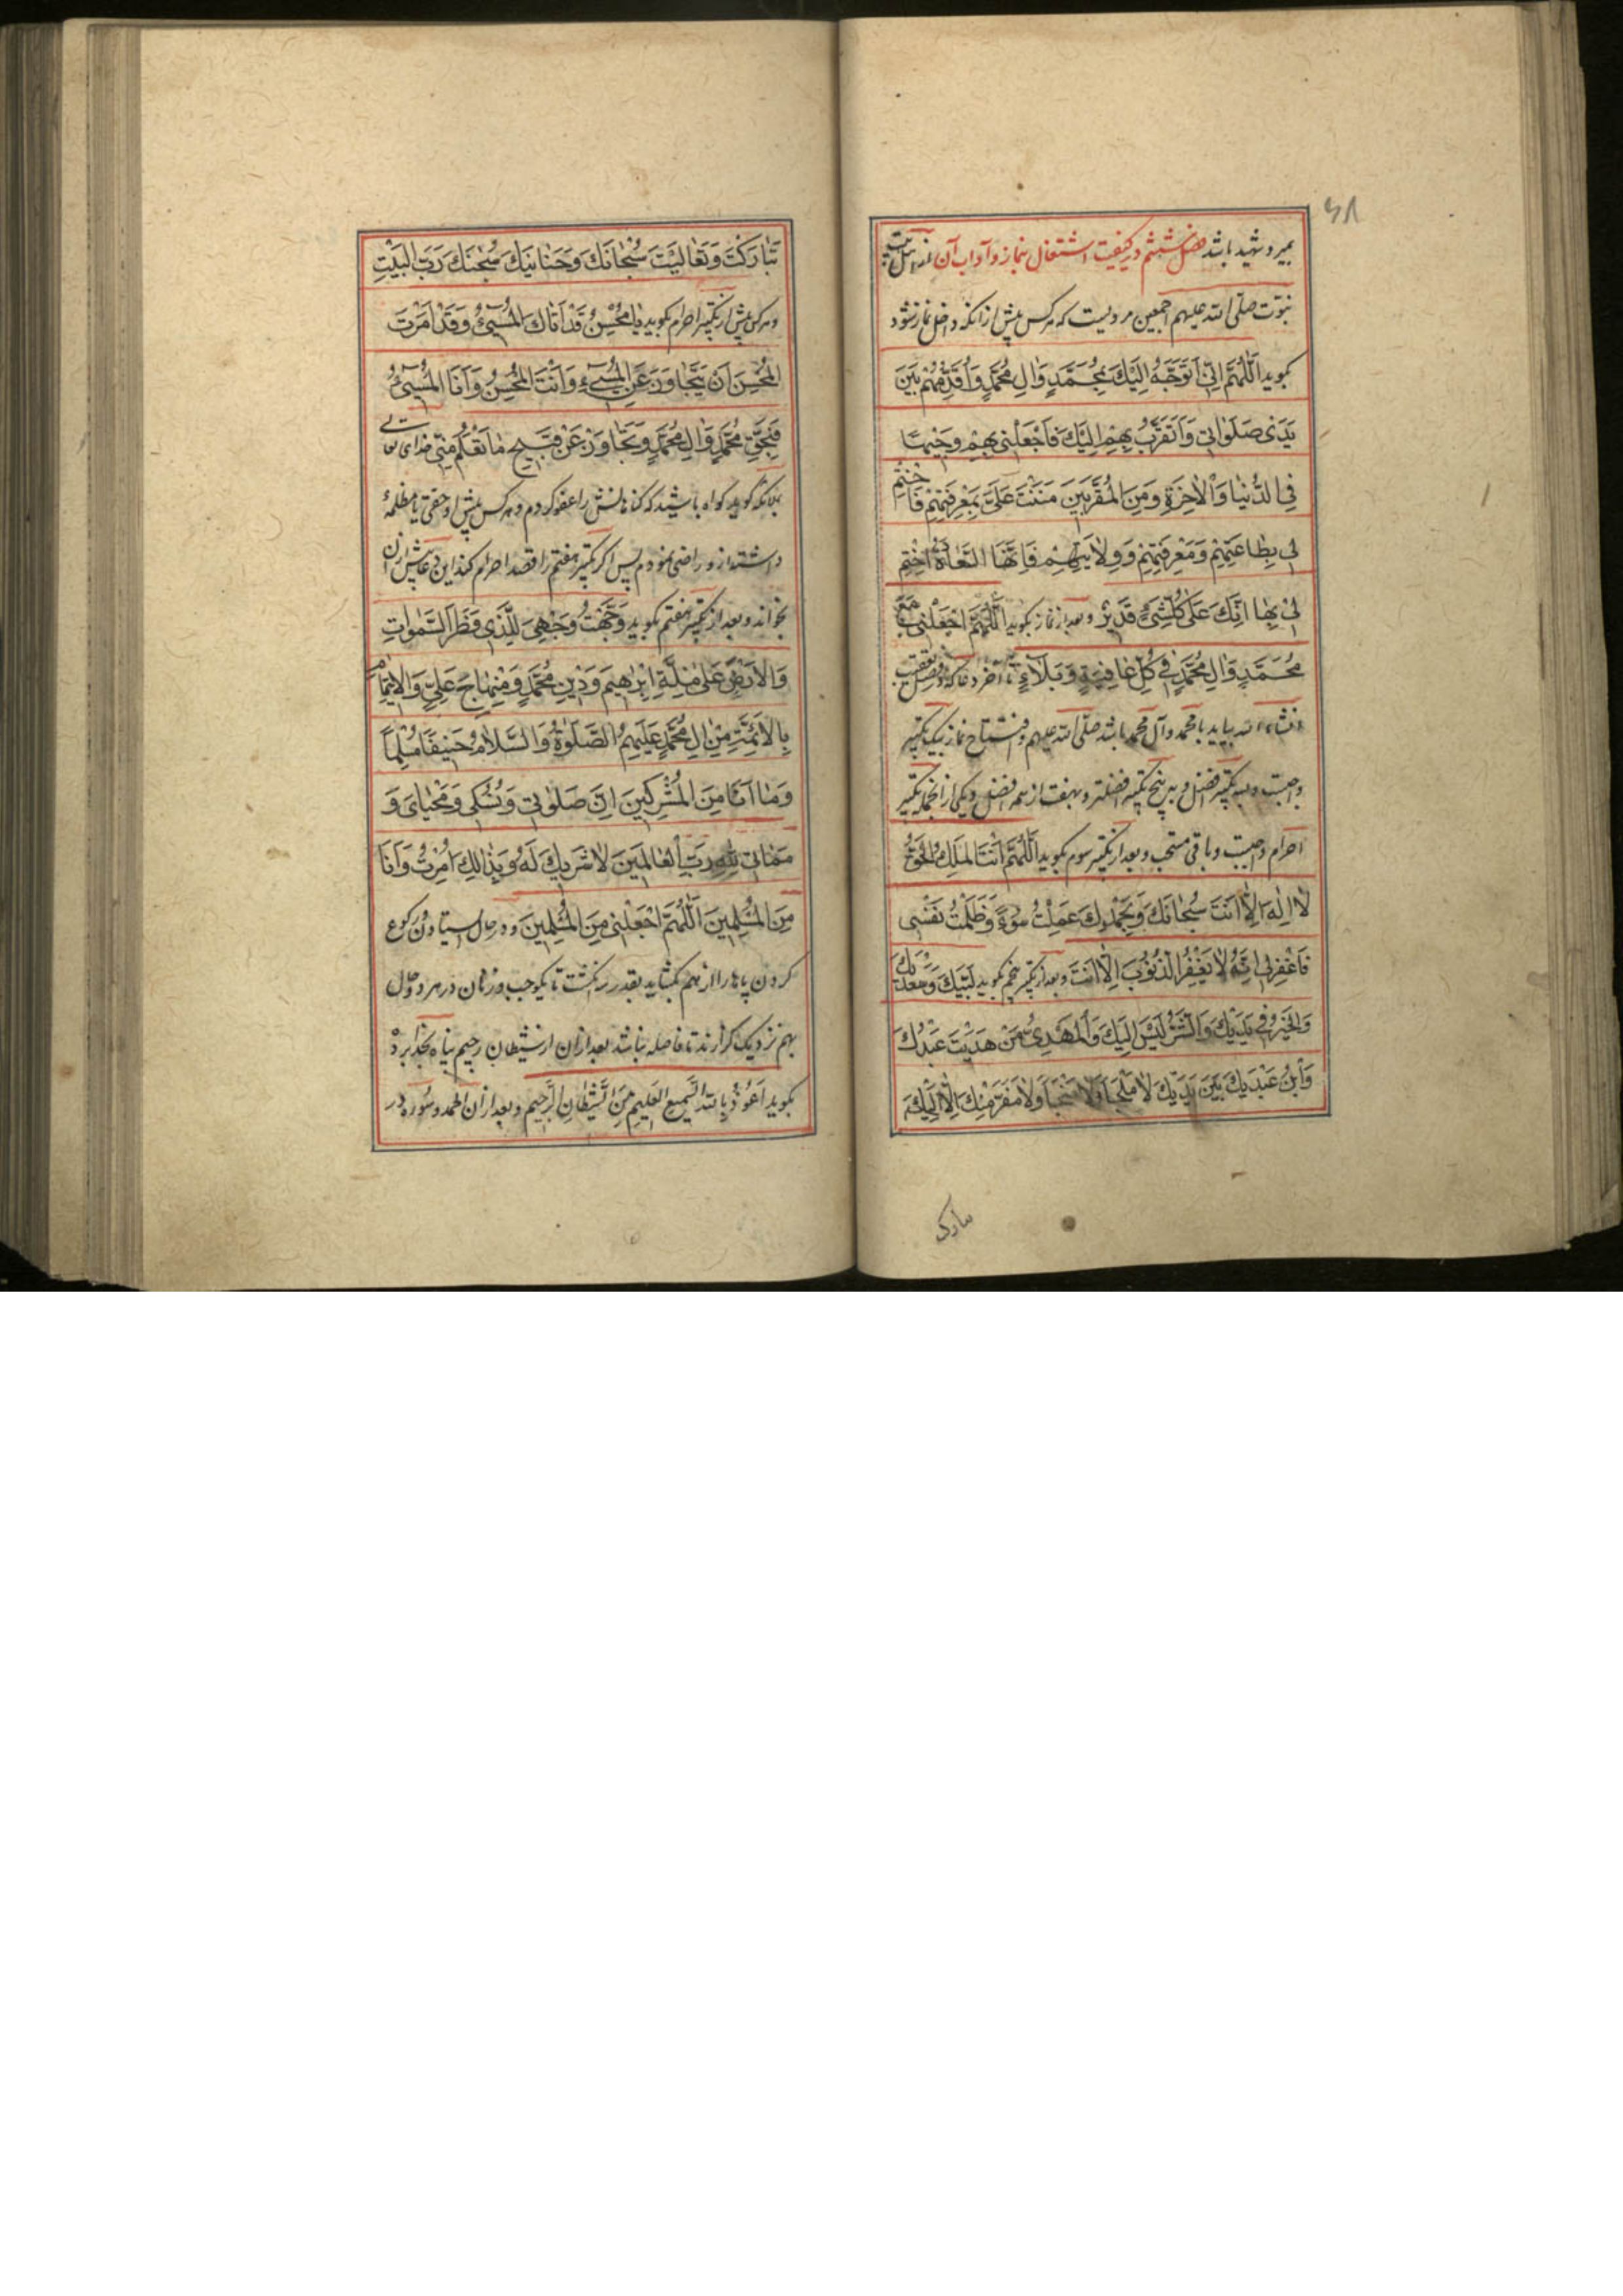 ۶۸
بمیرد شهید باشد فصل ششم در کیفیت اشتغال بنماز و آداب آن از اهل بیت
نبوّت صلّی الله علیهم اجمعین مرویست که هرکس پیش از انکه داخل نماز شود
بگوید اَللّٰهُمَّ اِنّی اَتَوَجَّهُ اِلَیْكَ بِمُحَمَّدٍ وَاٰلِ مُحَمَّدٍ وَاُقَدِّمُهُمْ بَیْنَ
یَدَیْ صَلَوٰاتی وَاَتَقَرَّبُ بِهِمْ اِلَیْكَ فَاجْعَلْنی بِهِمْ وَجیهًا
فِی الدُّنْیٰا وَالْاٰخِرَةِ وَمِنَ الْمُقَرَّبینَ مَنَنْتَ عَلَیَّ بِمَعْرِفَتِهِمْ فَاخْتِمْ
لی بِطٰاعَتِهِمْ وَمَعْرِفَتِهِمْ وَوِلٰایَتِهِمْ فَاِنَّهَا السَّعٰادَةُ اخْتِمْ
لی بِهٰا اِنَّكَ عَلیٰ كُلِّ شَیْءٍ قَدیرٌ و بعد از نماز بگوید اَللّٰهُمَّ اجْعَلْنی مَعَ
مُحَمَّدٍ وَاٰلِ مُحَمَّدٍ فی كُلِّ عٰافِیَةٍ وَبَلٰاءٍ تا آخر دعا که در فصل تعقیب
انشاء الله بیاید با محمد و آل محمد باشد صلّی الله علیهم و افتتاح نماز بیک تکبیر
واجبست و بسه تکبیر افضل و به پنج تکبیر افضلتر و بهفت از همه افضل و یکی از انجمله تکبیر
احرام واجبست و باقی مستحب و بعد از تکبیر سوم بگوید اَللّٰهُمَّ اَنْتَ الْمَلِكُ الْحَقُّ
لٰا اِلٰهَ اِلّٰا اَنْتَ سُبْحٰانَكَ وَبِحَمْدِكَ عَمِلْتُ سُوءً وَظَلَمْتُ نَفْسی
فَاغْفِرْلی اِنَّهُ لٰا یَغْفِرُ الذُّنُوبَ اِلّٰا اَنْتَ و بعد از تکبیر پنجم بگوید لَبَّیْكَ وَسَعْدَیْكَ
وَالْخَیْرُ فی یَدَیْكَ وَالشَّرُّ لَیْسَ اِلَیْكَ وَالْمَهْدِیُّ مَنْ هَدَیْتَ عَبْدُكَ
وَابْنُ عَبْدَیْكَ بَیْنَ یَدَیْكَ لٰا مَلْجَأَ وَلٰا مَنْجَا وَلٰا مَفَرَّ مِنْكَ اِلّٰا اِلَیْكَ
تبارک
تَبٰارَكْتَ وَتَعٰالَیْتَ سُبْحٰانَكَ وَحَنٰانَیْكَ سُبْحٰنَكَ رَبَّ الْبَیْتِ
و هرکس پیش از تکبیر احرام بگوید یٰا مُحْسِنُ قَدْ اَتٰاكَ الْمُسیئُ وَقَدْ اَمَرْتَ
الْمُحْسِنَ اَنْ یَتَجٰاوَزَ عَنِ الْمُسیءِ وَاَنْتَ الْمُحْسِنُ وَاَنَا الْمُسیئُ
فَبِحَقِّ مُحَمَّدٍ وَاٰلِ مُحَمَّدٍ وَتَجٰاوَزْ عَنْ قَبیحِ مٰا تَعْلَمُ مِنّی خدای تعالی
بملائکه گوید گواه باشید که گناهانش را عفو کردم و هرکس پیش او حقی یا مظلمهٔ
داشته از و راضی نمودم پس اگر تکبیر هفتم را قصد احرام کند این دعا پیش از ان
بخواند و بعد از تکبیر هفتم بگوید وَجَّهْتُ وَجْهِیَ لِلَّذی فَطَرَ السَّمٰوٰاتِ
وَالْاَرْضَ عَلیٰ مِلَّةِ اِبْرٰهیمَ وَدینِ مُحَمَّدٍ وَمِنْهٰاجِ عَلِیٍّ وَالْاِیتِمٰامِ
بِالْاَئِمَّةِ مِنْ اٰلِ مُحَمَّدٍ عَلَیْهِمُ الصَّلٰوةُ وَالسَّلٰامُ حَنیفًا مُسْلِمًا
وَمٰا اَنَا مِنَ الْمُشْرِكینَ اِنَّ صَلٰوتی وَنُسُكی وَمَحْیٰایَ وَ
مَمٰاتی لِلّٰهِ رَبِّ الْعٰالَمینَ لٰا شَریكَ لَهُ وَبِذٰلِكَ اُمِرْتُ وَاَنَا
مِنَ الْمُسْلِمینَ اَللّٰهُمَّ اجْعَلْنی مِنَ الْمُسْلِمینَ و در حال ایستادن و رکوع
کردن پاها را از هم بگشاید بقدر سه انگشت تا یکوجب و زنان در هر دو حال
بهم نزدیک گزارند تا فاصله نباشد بعد از ان از شیطان رجیم پناه بخدا برد
بگوید اَعُوذُ بِالله السَّمیعِ الْعَلیمِ مِنَ الشَّیْطٰانِ الرَّجیمِ و بعد از ان الحمد و سوره در